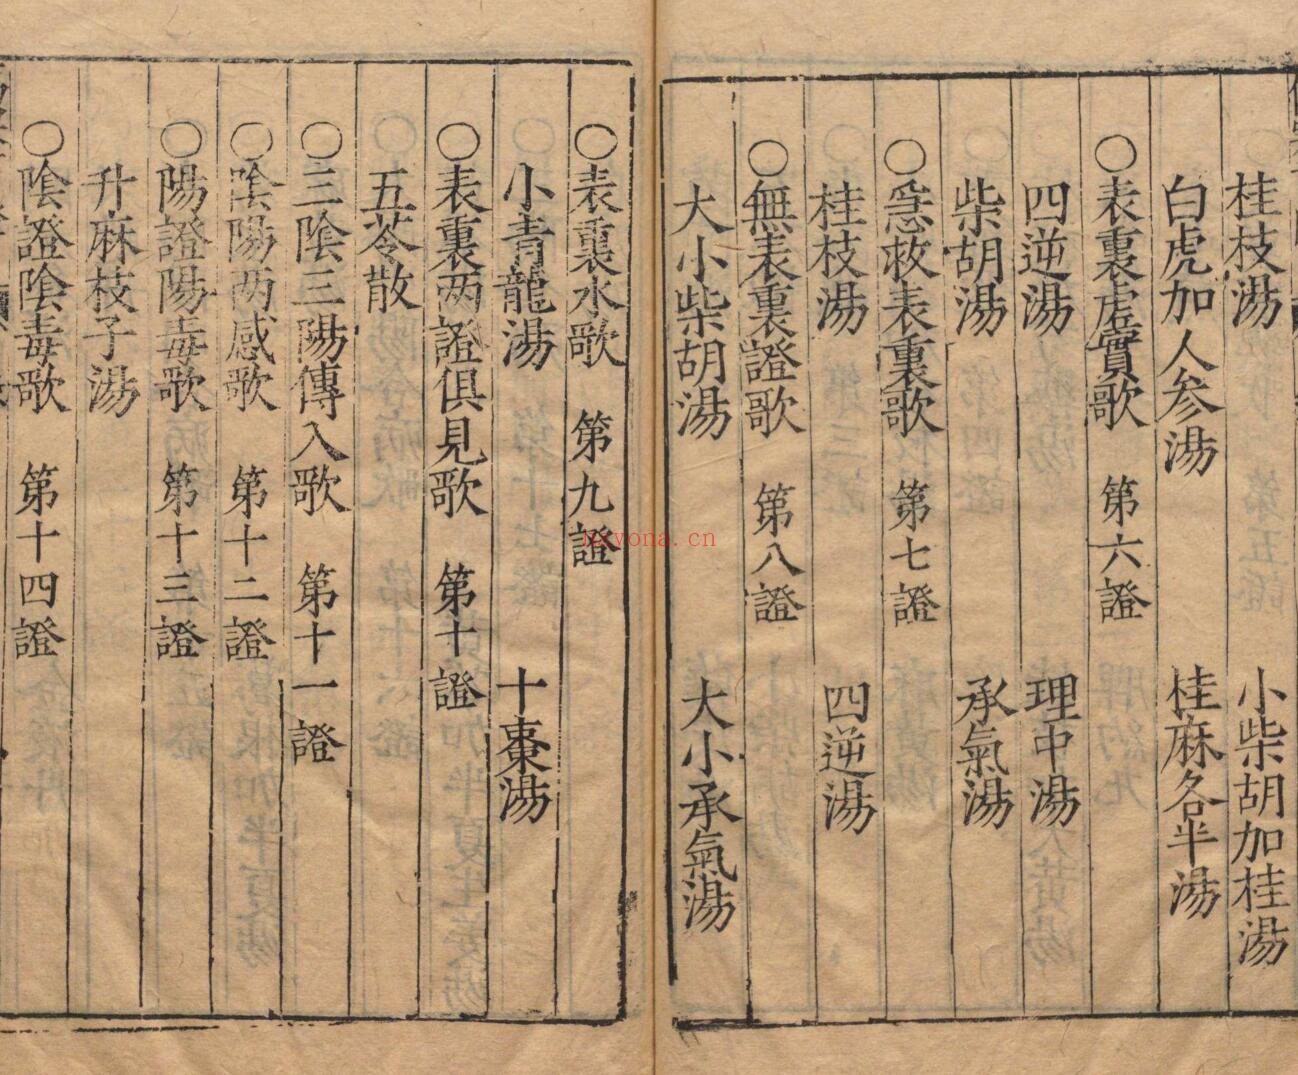 桂枝湯 小柴胡加桂湯
白虎加人參湯 桂麻各半湯
○表裏虛實歌 第六證
四逆湯 理中湯
柴胡湯 承氣湯
○急救表裏歌 第七證
桂枝湯 四逆湯
○無表裏證歌 第八證
大小柴胡湯 大小承氣湯
○表裏水歌 第九證
小青龍湯 十棗湯
○表裏两證俱見歌 第十證
五苓散
○三陰三陽傳入歌 第十一證
○陰陽两感歌 第十二證
○陽證陽毒歌 第十三證
升麻枝子湯
○陰證陰毒歌 第十四證
nxyona.cn